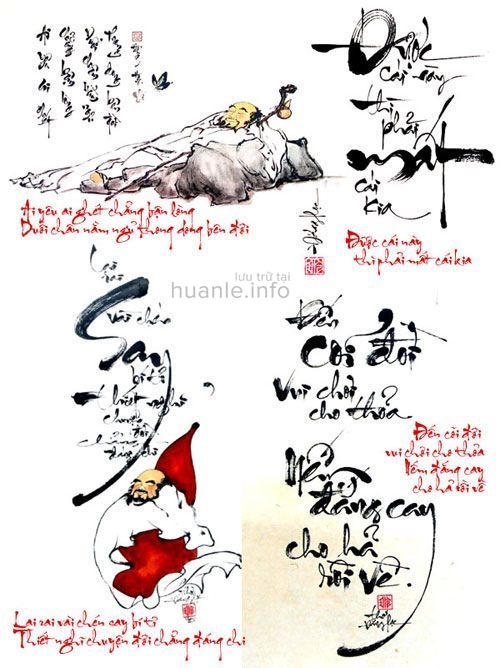 Được
cái này
thì phải
mất
cái
kia
Ai yêu ai ghét chẳng bận lòng
Duỗi chân nằm ngủ thong dong bên đời
Được cái này
thì phải mất cái kia
lưu trữ tại
huanle.info
Lai
rai
vài chén
Say
bí tỉ
thiết nghĩ
chuyện
đời
chẳng
đáng chi
Lai rai vài chén say bí tỉ
Thiết nghĩ chuyện đời chẳng đáng chi
Đến
cõi đời
vui chơi
cho thỏa
Nếm
đắng cay
cho hả
rồi về.
Đến cõi đời
vui chơi cho thỏa
Nếm đắng cay
cho hả rồi về